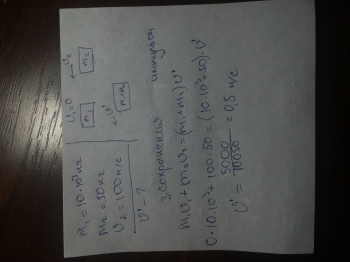 m₁ = 10·10³ кг
m₂ = 50 кг
υ₂ = 100 м/с
υ' - ?
υ₁ = 0
m₁
υ'
m₁m₂
υ₂
m₂
з сохранения импульса
m₁υ₁ + m₂υ₂ = (m₁ + m₂) υ'
0·10·10³ + 100·50 = (10·10³ + 50)·υ'
υ' = 5000 / 10050 = 0,5 м/с